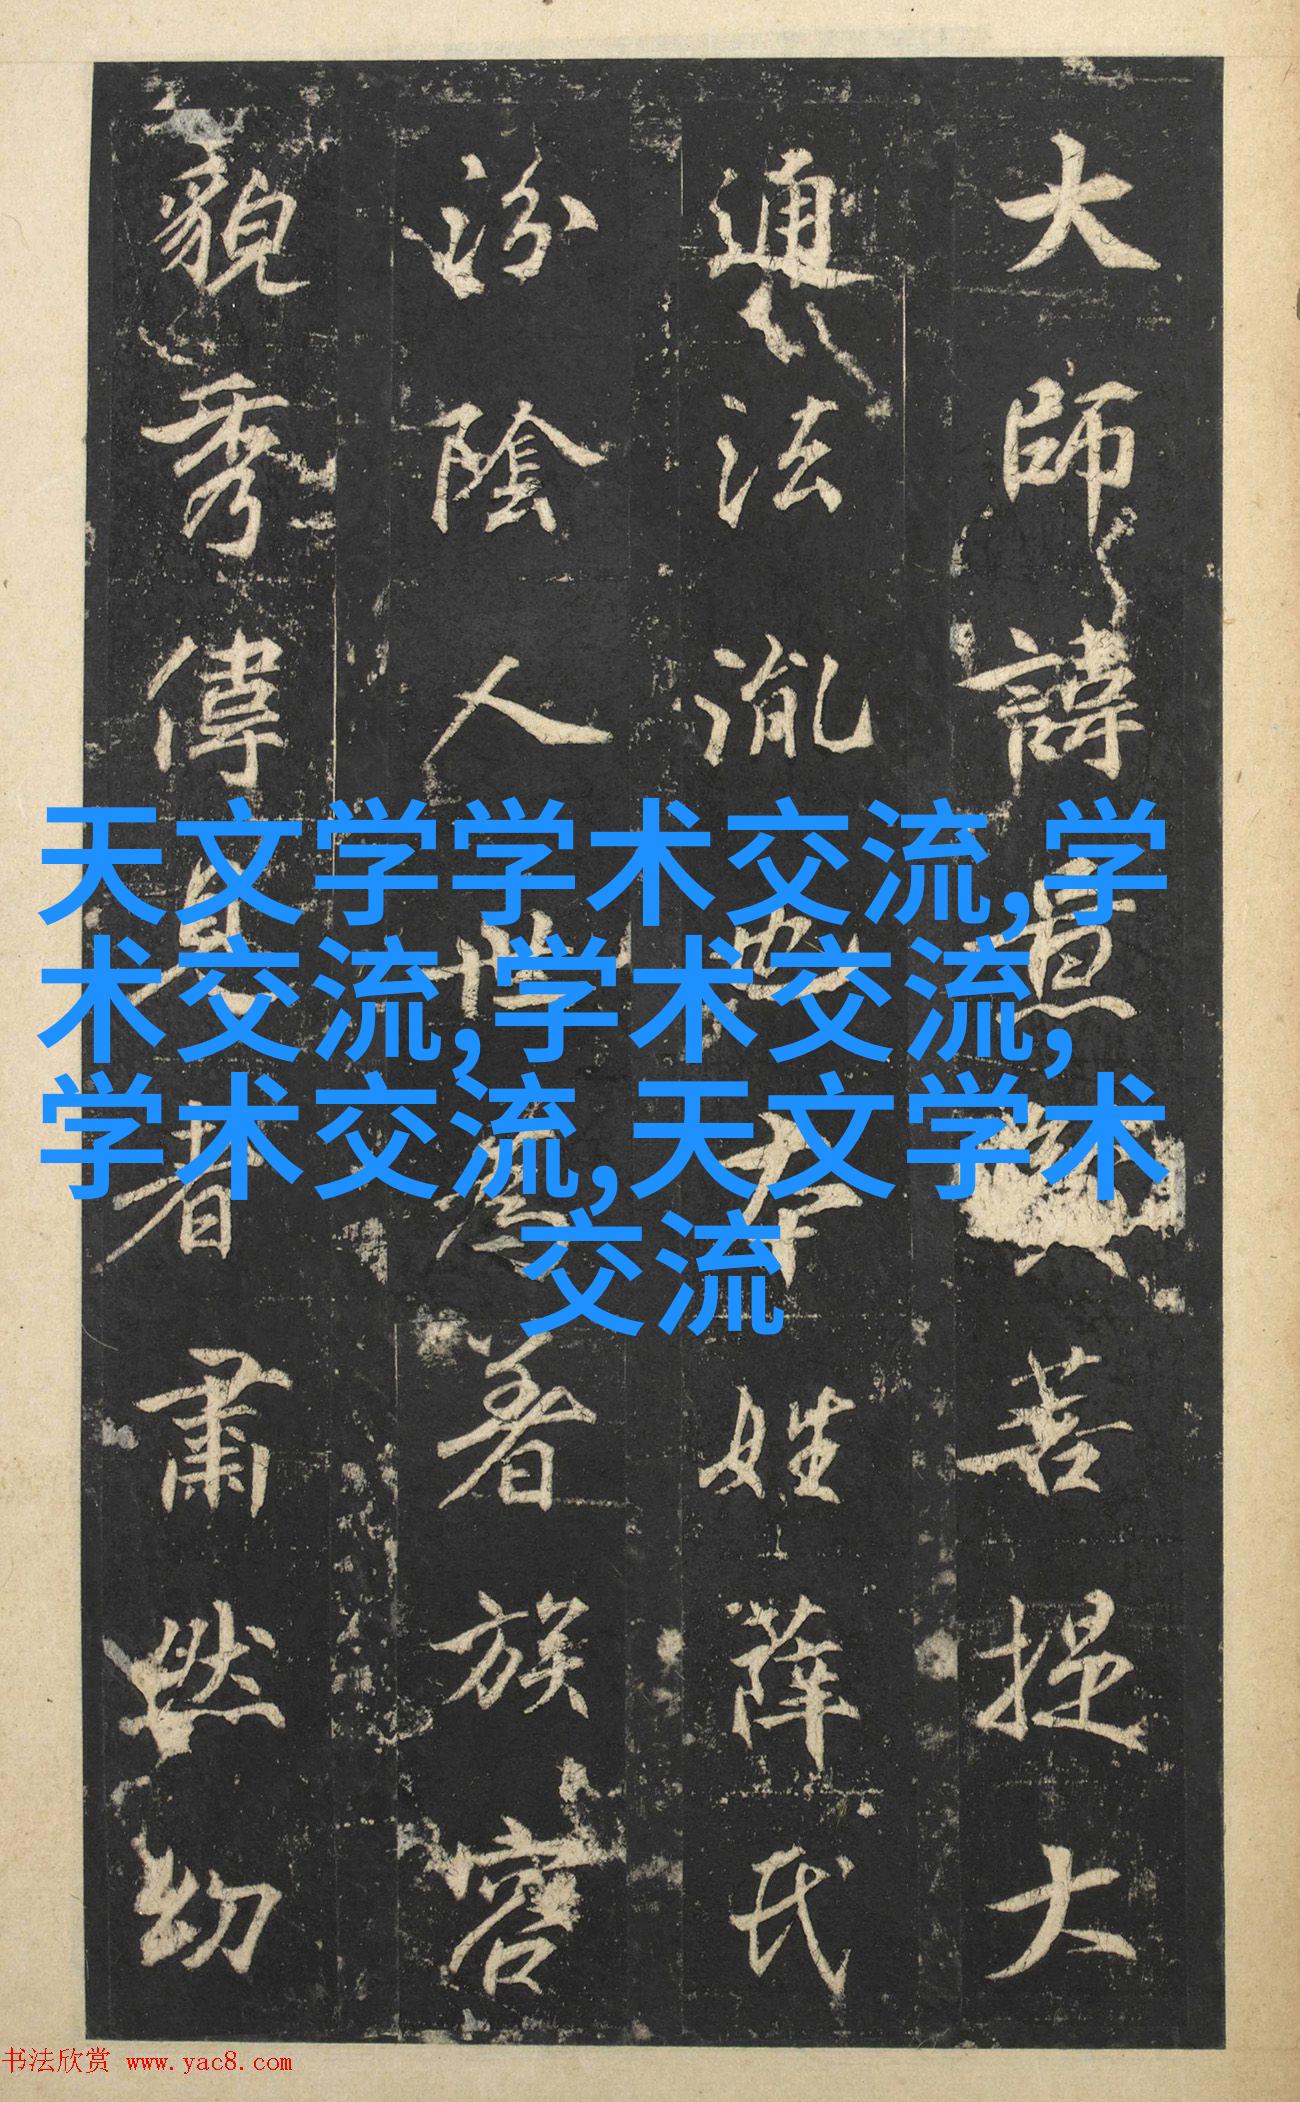 大師諱菩提大
通法胤本姓薛氏
汾陰人世為著族容
貌秀偉見者肅然幼
天文学学术交流,学
术交流,学术交流,
学术交流,天文学术
交流
书法欣赏 www.yac8.com